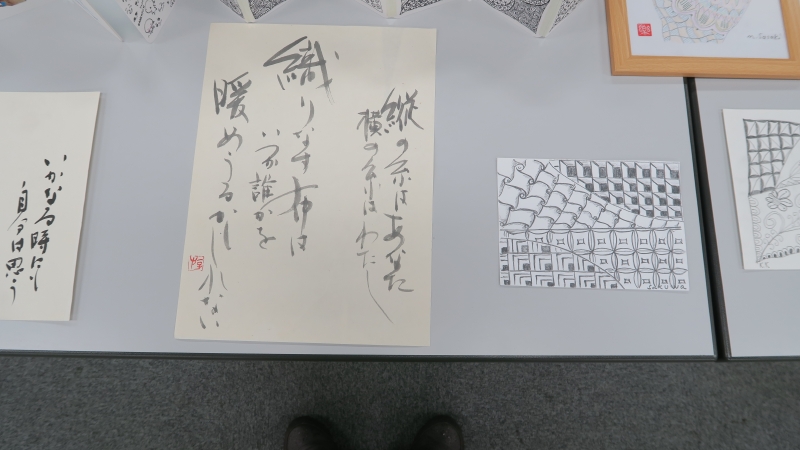 縦の糸はあなた
横の糸はわたし
織りなす布は
いつか誰かを
暖めうるかもしれない
いかなる時にも
自分は思う